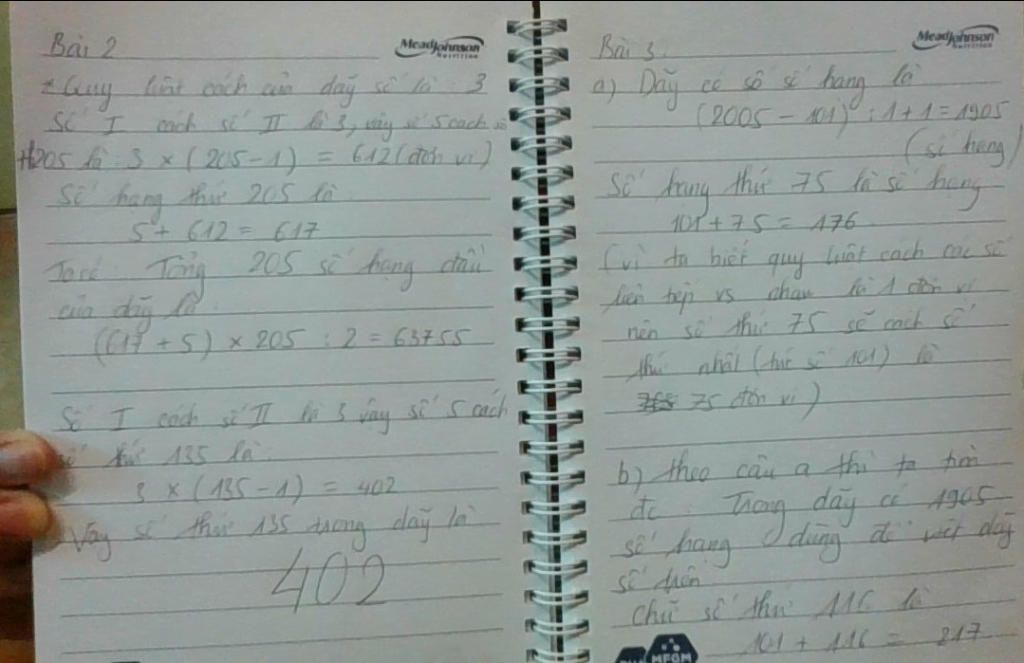 Bài 2
MeadJohnson
Nutrition
* Quy luật cách của dãy số là : 3
Số I cách số II là 3, vậy số 5 cách số
th205 là : 3 × (205-1) = 612 (đơn vị)
Số hạng thứ 205 là
5 + 612 = 617
Ta có : Tổng 205 số hạng đầu
của dãy là :
(617 + 5) × 205 : 2 = 63755
Số I cách số II là 3 vậy số 5 cách
số thứ 135 là :
3 × (135-1) = 402
Vậy số thứ 135 trong dãy là
402
Bài 3.
MeadJohnson
Nutrition
a) Dãy có số số hạng là
(2005 - 101) : 1 + 1 = 1905
(số hạng)
Số hạng thứ 75 là số hạng
101 + 75 = 176
(vì ta biết quy luật cách các số
liên tiếp vs nhau là 1 đơn vị
nên số thứ 75 sẽ cách số
thứ nhất (tức số 101) là
75 đơn vị)
b) theo câu a thì ta tìm
đc : Trong dãy có 1905
số hạng dùng để viết dãy
số trên
Chữ số thứ 116 là
101 + 116 = 217
MFGM